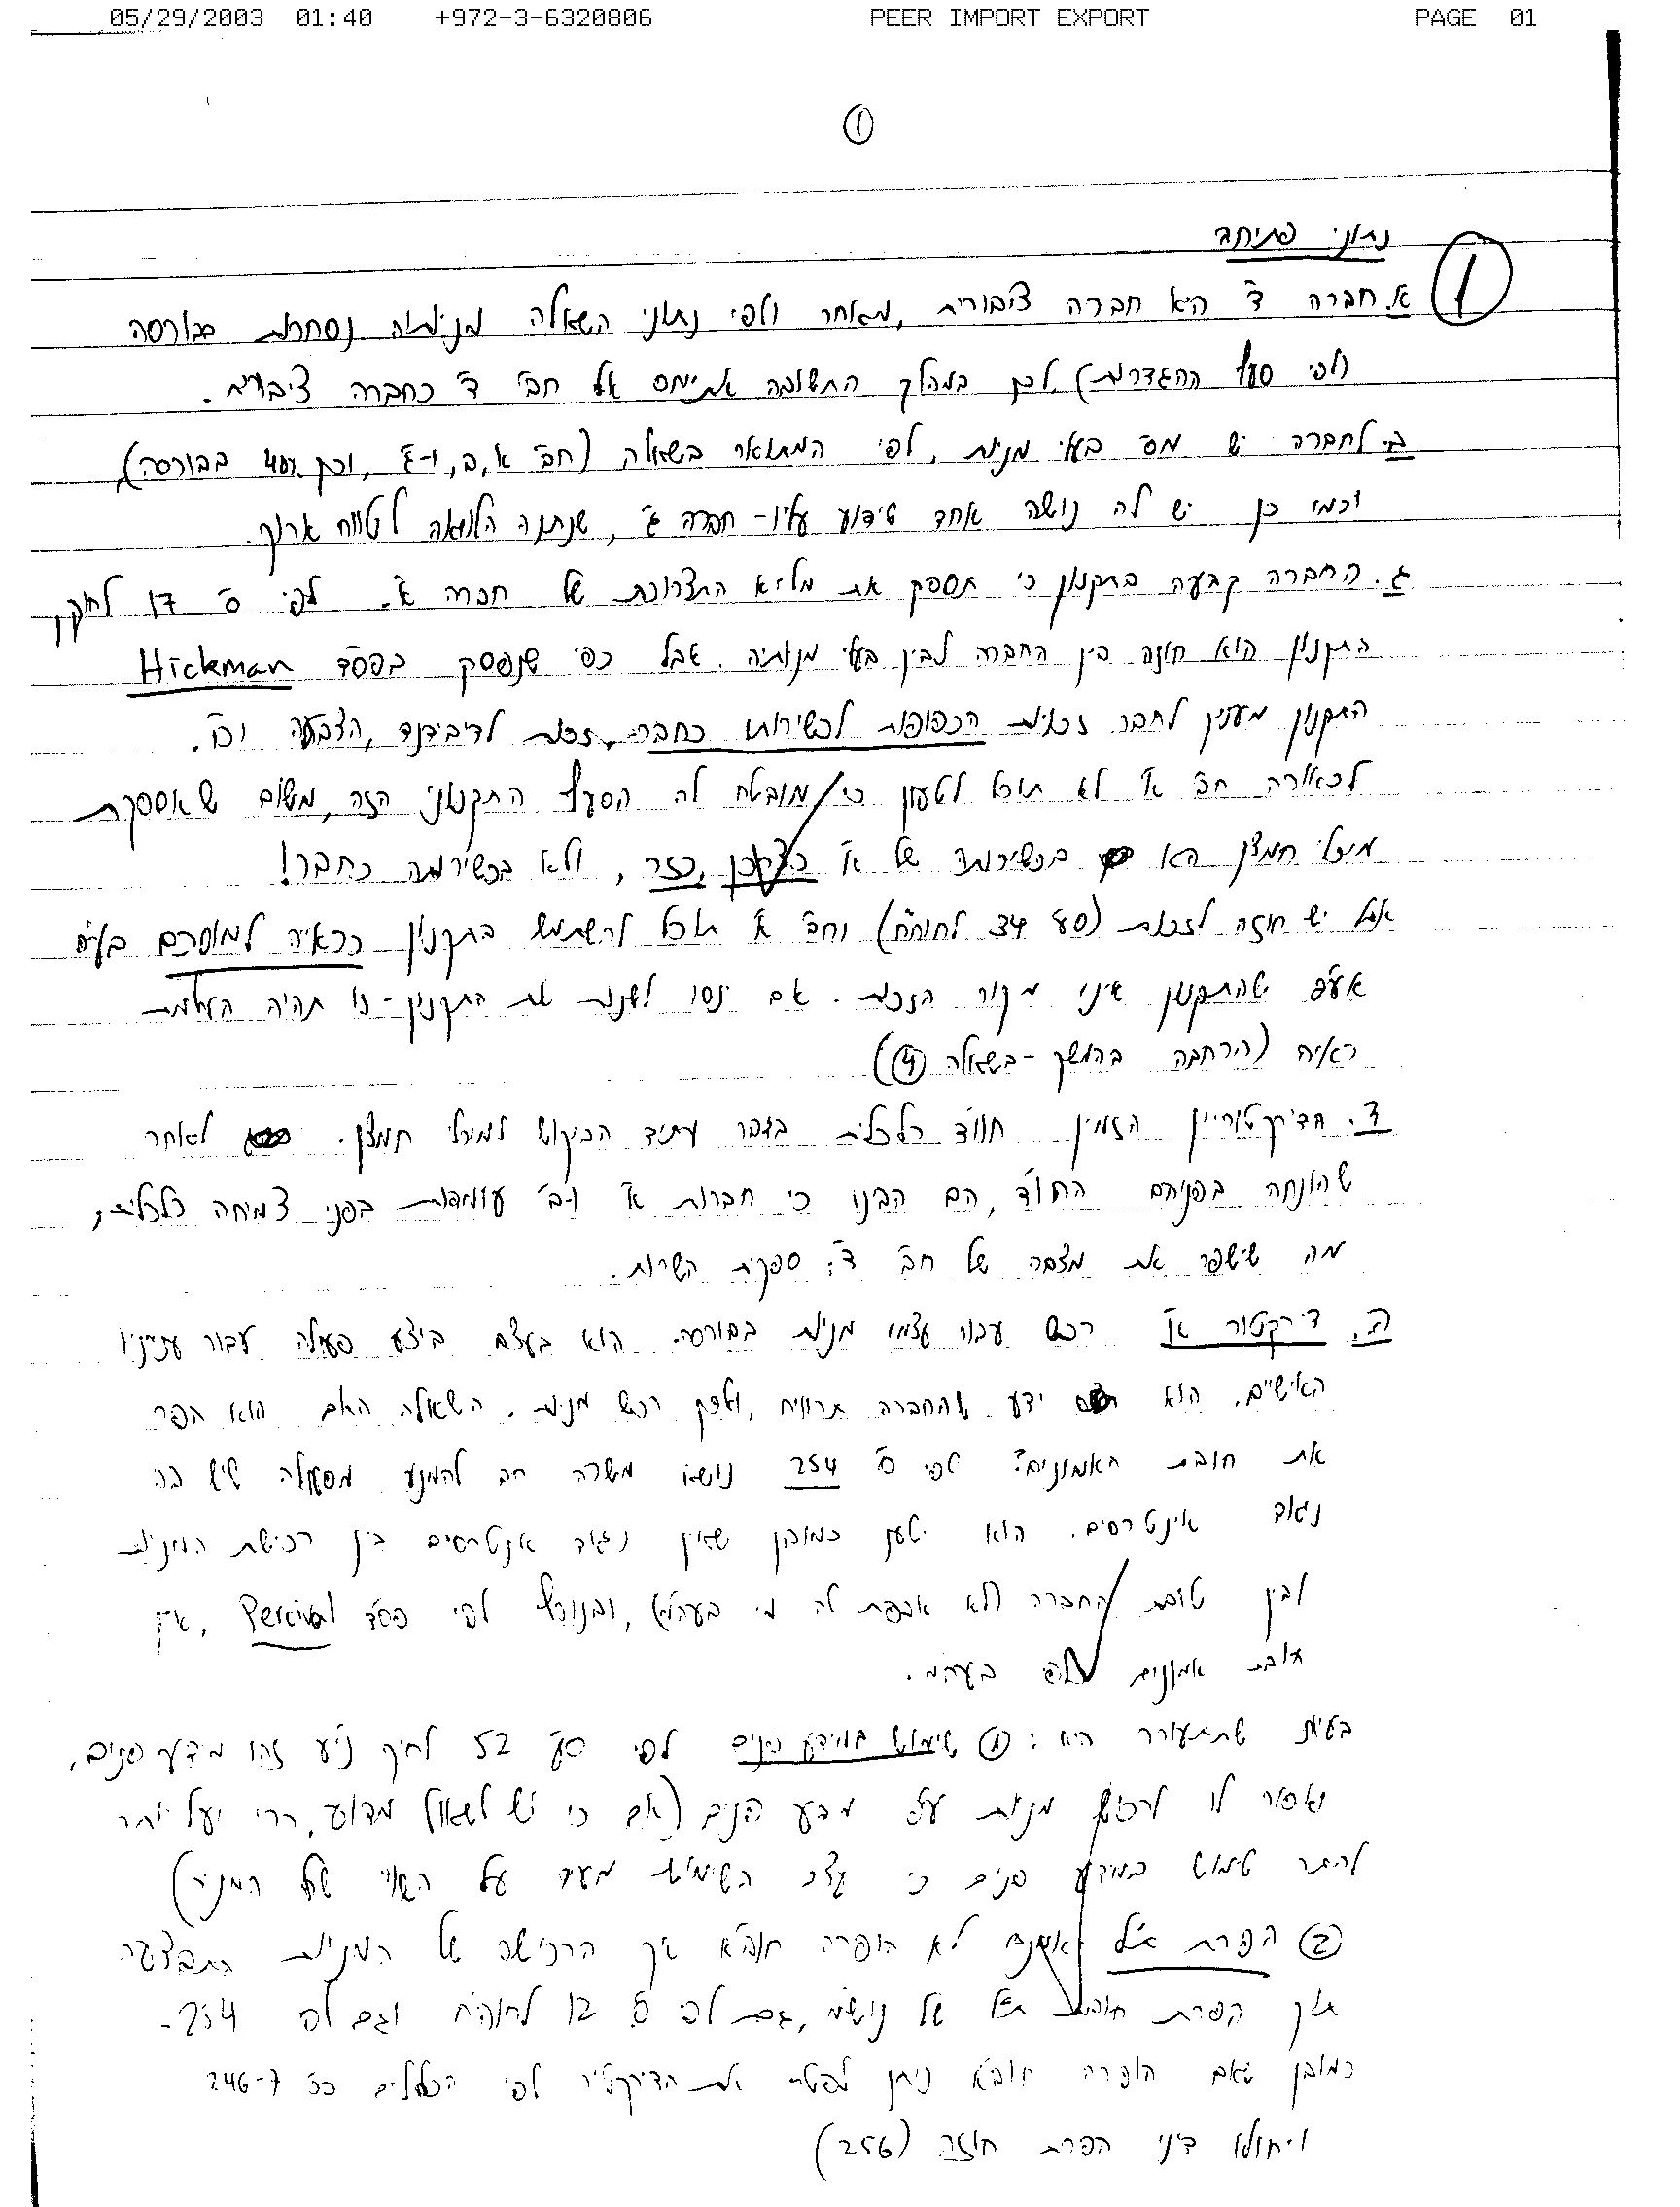 05/29/2003 01:40 +972-3-6320806 PEER IMPORT EXPORT PAGE 01
1
נתוני פתיחה
1
א. חברה ד' היא חברה ציבורית, מאחר ולפי נתוני השאלה מניותיה נסחרות בבורסה
(לפי סעיף ההגדרות) לכן במהלך התשובה אתייחס אל חב' ד' כחברה ציבורית.
ב. לחברה יש מס' בעלי מניות, לפי המתואר בשאלה (חב' א, ב, ו-ג', וכן 40% בבורסה)
וכמו כן יש לה נושה אחד שידוע עליו - חברה ג', שנתנה הלוואה לטווח ארוך.
ג. החברה קבעה בתקנון כי תספק את מלוא התצרוכת של חברה א'. לפי ס' 17 לחוק,
התקנון הוא חוזה בין החברה לבין בעלי מניותיה. אבל כפי שנפסק בפס"ד Hickman
התקנון מעניק לחבר זכויות הכפופות לכשירותו כחבר, זכות לדיבידנד, הצבעה וכו'.
לכאורה חב' א' לא תוכל לטעון כי מובטח לה הסעיף התקנוני הזה, משום שאספקת
מיכלי חמצן היא בכשירותה של א' כזר, ולא בכשירותה כחבר!
אולי יש חוזה לזכות (סע' 34 לחוה"ח) וחב' א' תוכל להשתמש בתקנון כראיה למוסכם בע"פ
אע"פ שהתקנון אינו מקור הזכות. אם ינסו לשנות את התקנון - זו תהיה העלמת
ראיה (הרחבה בהמשך - בשאלה 4)
ד. הדירקטוריון הזמין חוו"ד כלכלית בדבר עתיד הביקוש למיכלי חמצן. לאחר
שהונחה בפניהם החוו"ד, הם הבינו כי חברות א' ו-ב' עומדות בפני צמיחה כלכלית,
מה שישפר את מצבה של חב' ד', ספקית השרות.
ה. דירקטור א' רכש עבור עצמו מניות בבורסה. הוא בעצם ביצע פעולה עבור ענייניו
האישיים. הוא ידע שהחברה תרוויח, ולכן רכש מניות. השאלה האם הוא הפר
את חובת האמונים? לפי ס' 254 נושא משרה חב להמנע מפעולה שיש בה
ניגוד אינטרסים. הוא יטען כמובן שאין ניגוד אינטרסים בין רכישת המניות
לבין טובת החברה (לא אכפת לה מי בעה"מ), ובנוסף לפי פס"ד Percival, אין
חובת אמונים לפי בעה"מ.
בעיות שתתעורר היא: 1 שימוש במידע פנים לפי סע' 52 לחוק ני"ע זהו מידע פנים,
ואסור לו לרכוש מניות ע"פ מידע הפנים (אם כי יש לשאול מדוע, הרי יעיל יותר
להתיר שימוש במידע פנים כי עצם השימוש מעיד על השווי של המניה)
2 הפרת תו"ל אמנם לא הופרה חוה"א אך הרכישה של המניות התבצעה
תוך הפרת חובת תו"ל של נוש"מ, גם לפי ס' 12 לחוה"ח וגם לפי 254 -
כמובן שאם הופרה חוה"א ניתן לפטר את הדירקטור לפי הכללים בס' 246-7
ויחולו דיני הפרת חוזה (256)